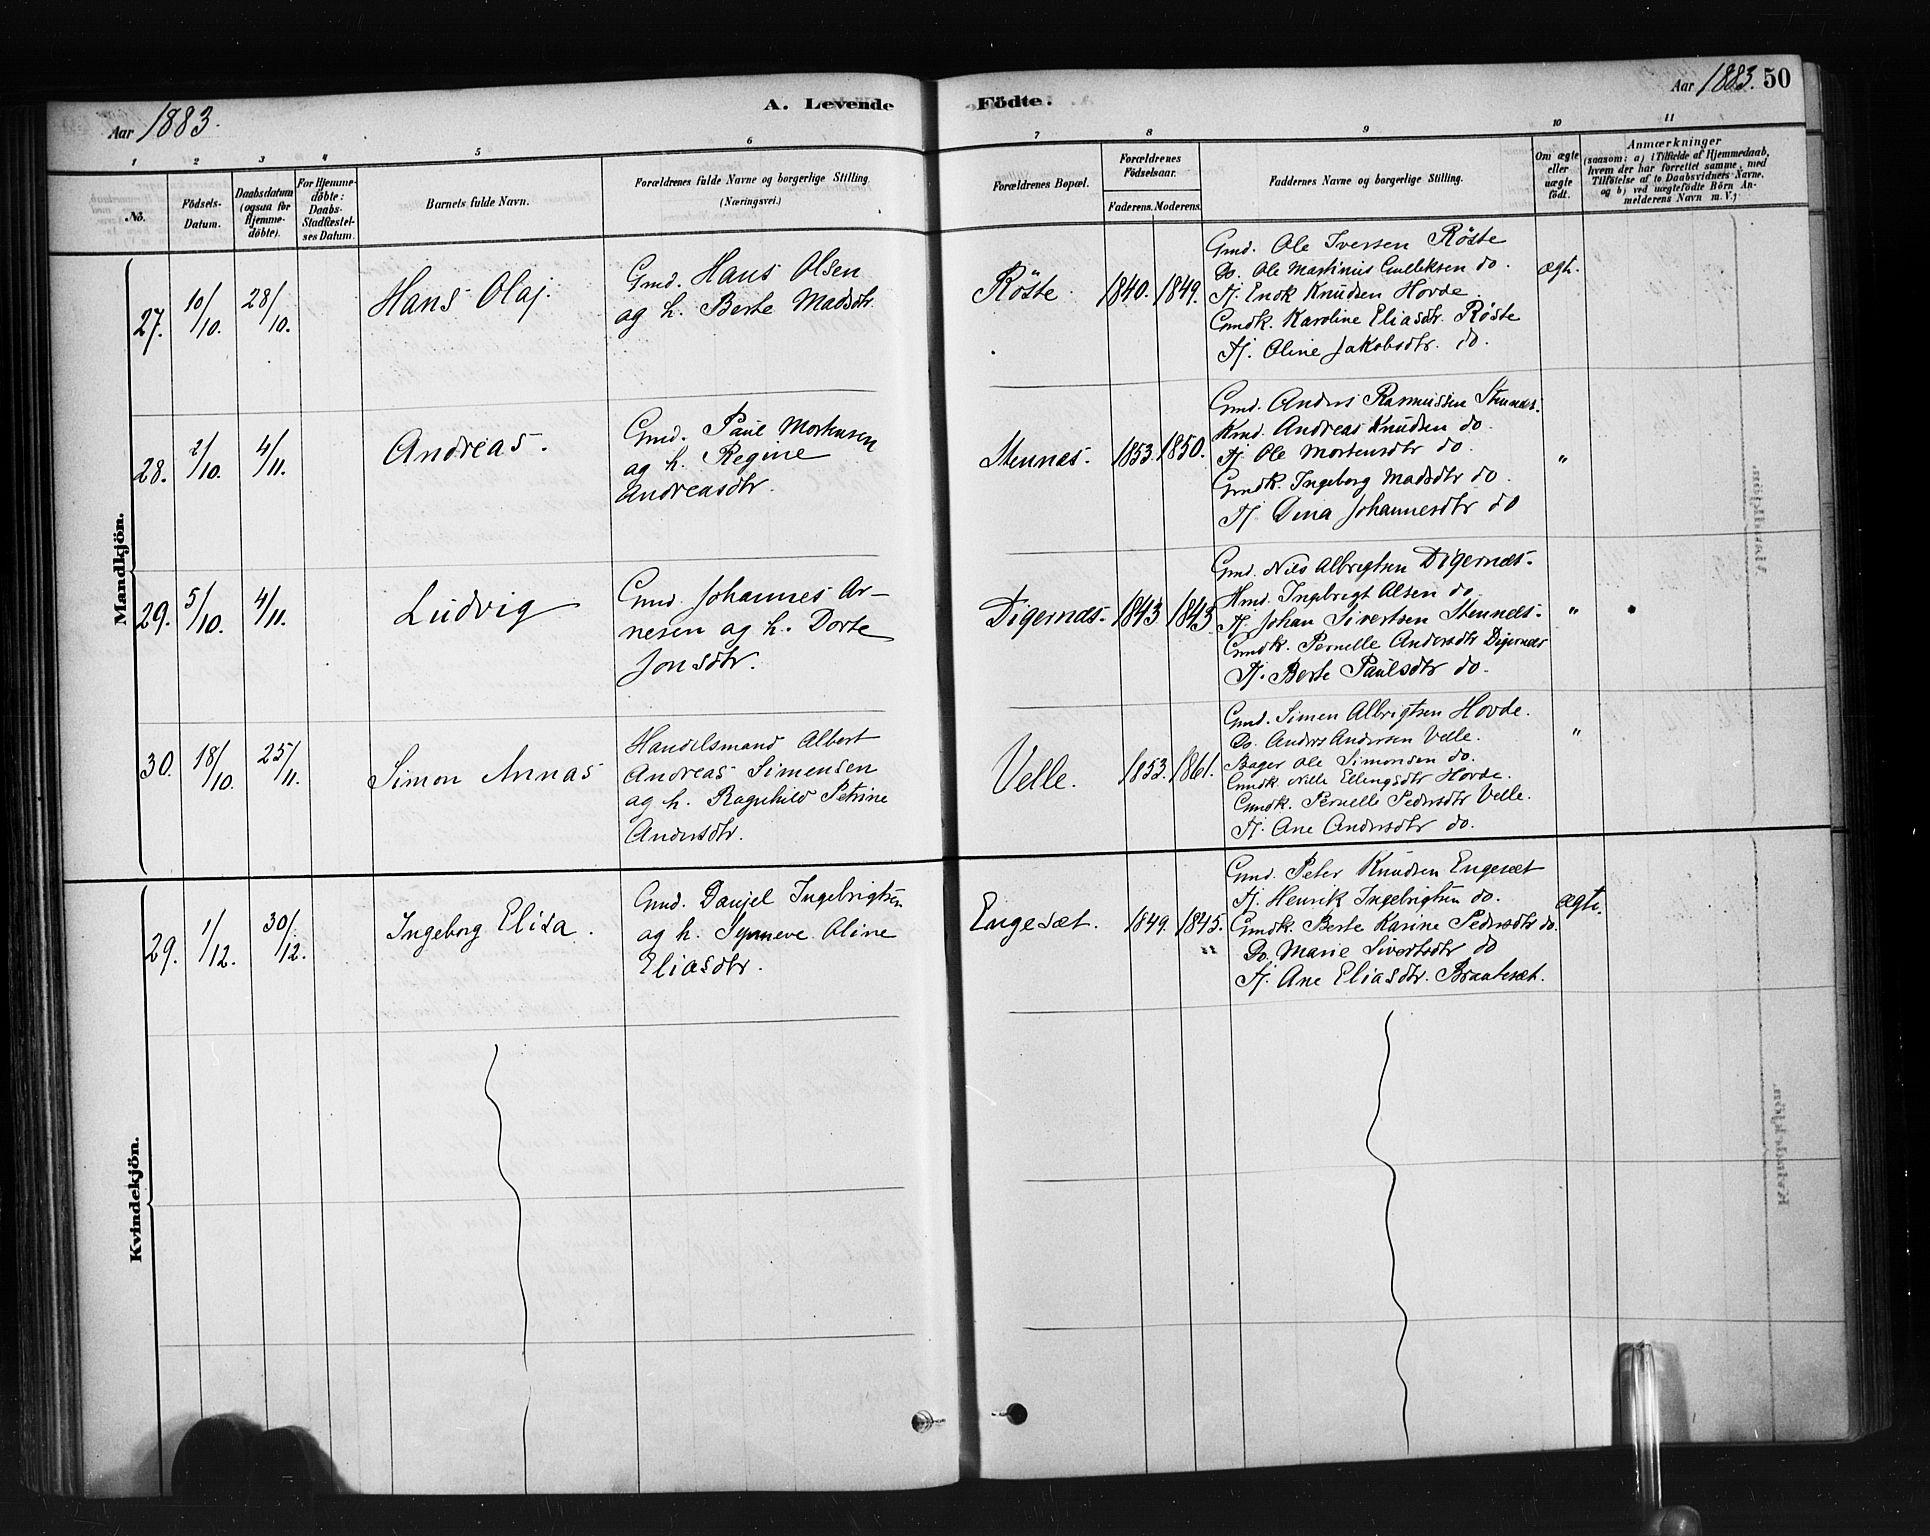 Aar 1883.
A. Levende
Födte.
Aar 1883. 50
1 2 3 4 5 6 7 8 9 10 11
No.
Födsels-
Datum.
Daabsdatum
(ogsaa for
Hjemme-
döbte).
For Hjemme-
döbte:
Daabs-
Stadfæstel-
ses Datum.
Barnets fulde Navn.
Forældrenes fulde Navne og borgerlige Stilling.
(Næringsvei.)
Forældrenes Bopæl.
Forældrenes
Födselsaar.
Faderens. Moderens.
Faddernes Navne og borgerlige Stilling.
Om ægte
eller
uægte
födt.
Anmærkninger
(saasom: a) i Tilfælde af Hjemmedaab,
hvem der har forrettet samme, med
Tilföielse af to Daabsvidners Navne,
og b) ved uægtefödte Börn An-
melderens Navn m. V.)
Mandkjön.
27. 10/10. 28/10. Hans Olaj.
Gmd. Hans Olsen
og h. Berte Madsdtr.
Röste. 1840. 1849.
Gmd. Ole Iversen Röste
Do. Ole Martinus Gulliksen do.
Tj. Enok Knudsen Hovde.
Gmdk. Karoline Eliasdtr. Röste
Tj. Oline Jakobsdtr. do.
ægt.
28. 2/10. 4/11. Andreas.
Gmd. Paul Mortensen
og h. Regine
Andreasdtr.
Stennæs. 1853. 1850.
Gmd. Anders Rasmussen Stennæs.
Kmd. Andreas Knudsen do.
Tj. Ole Mortensdtr do.
Gmdk. Ingeborg Madsdtr do.
Tj. Dina Johannesdtr do
"
29. 5/10. 4/11. Ludvig
Gmd. Johannes Ar-
nesen og h. Dorte
Jonsdtr.
Digernæs. 1843 1843.
Gmd. Nils Albrigtsen Digernæs.
Hmd. Ingebrigt Olsen do.
Tj. Johan Sivertsen Stennæs.
Gmdk. Pernelle Andersdtr Digernæs
Tj. Berte Paulsdtr do.
"
30. 18/10. 25/11. Simon Annas
Handelsmand Albert
Andreas Simensen
og h. Ragnhild Petrine
Andersdtr.
Velle. 1853. 1861.
Gmd. Simen Albrigtsen Hovde.
Do. Anders Andersen Velle.
Bager Ole Simonsen do.
Gmdk. Nille Ellingsdtr Hovde.
Gmdk. Pernelle Pedersdtr Velle.
Tj. Ane Andersdtr do.
"
Kvindekjön.
29. 1/12. 30/12. Ingeborg Elisa.
Gmd. Danjel Ingebrigtsen
og h. Synneve Oline
Eliasdtr.
Engesæt. 1849. 1845.
Gmd. Peter Knudsen Engesæt
Tj. Henrik Ingebrigtsen do.
Gmdk. Berte Karine Pedersdtr do.
Do. Marie Sivertsdtr do
Tj. Ane Eliasdtr. Braatesæt.
ægte.